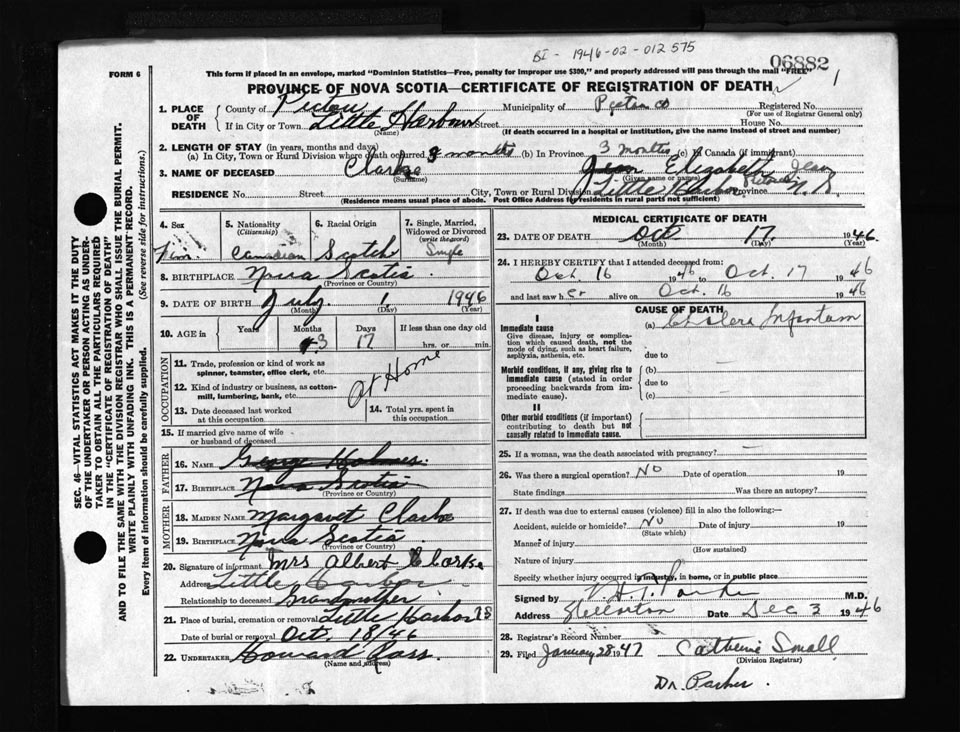 BI - 1946-02-012575
06882
FORM 6
This form if placed in an envelope, marked "Dominion Statistics—Free, penalty for improper use $300," and properly addressed will pass through the mail "FREE"
PROVINCE OF NOVA SCOTIA—CERTIFICATE OF REGISTRATION OF DEATH
1. PLACE OF DEATH
County of Pictou Municipality of Registered No.
(For use of Registrar General only)
If in City or Town Little Harbour Street House No.
(Name) (If death occurred in a hospital or institution, give the name instead of street and number)
2. LENGTH OF STAY (in years, months and days)
(a) In City, Town or Rural Division where death occurred 3 months (b) In Province 3 months (c) In Canada (if immigrant)
3. NAME OF DECEASED Clarke Jean Elizabeth Jean
(Surname) (Given name or names)
RESIDENCE No. Street City, Town or Rural Division Little Harbor Pictou Province N.S.
(Residence means usual place of abode. Post Office Address for residents in rural parts not sufficient)
4. Sex
Fem.
5. Nationality (Citizenship)
Canadian
6. Racial Origin
Scotch
7. Single, Married, Widowed or Divorced (write the word)
Single
8. BIRTHPLACE Nova Scotia
(Province or Country)
9. DATE OF BIRTH July 1 1946
(Month) (Day) (Year)
10. AGE in Years Months 3 Days 17 If less than one day old
hrs. or min.
OCCUPATION
11. Trade, profession or kind of work as spinner, teamster, office clerk, etc.
12. Kind of industry or business, as cotton-mill, lumbering, bank, etc.
At Home
13. Date deceased last worked at this occupation
14. Total yrs. spent in this occupation
15. If married give name of wife or husband of deceased
FATHER
16. NAME George Holmes
17. BIRTHPLACE Nova Scotia
(Province or Country)
MOTHER
18. MAIDEN NAME Margaret Clarke
19. BIRTHPLACE Nova Scotia
(Province or Country)
20. Signature of informant Mrs Albert Clarke
Address Little Harbor
Relationship to deceased Grandmother
21. Place of burial, cremation or removal Little Harbor
Date of burial or removal Oct. 18/46
22. UNDERTAKER Howard Ross
(Name and address)
MEDICAL CERTIFICATE OF DEATH
23. DATE OF DEATH Oct 17 1946
(Month) (Day) (Year)
24. I HEREBY CERTIFY that I attended deceased from:
Oct. 16 1946 to Oct. 17 1946
and last saw her alive on Oct. 16 1946
CAUSE OF DEATH
I
Immediate cause (a) Cholera Infantum
Give disease, injury or complication which caused death, not the mode of dying, such as heart failure, asphyxia, asthenia, etc.
due to
Morbid conditions, if any, giving rise to immediate cause (stated in order proceeding backwards from immediate cause).
(b)
due to
(c)
II
Other morbid conditions (if important) contributing to death but not causally related to immediate cause.
25. If a woman, was the death associated with pregnancy? —
26. Was there a surgical operation? No Date of operation 19
State findings Was there an autopsy?
27. If death was due to external causes (violence) fill in also the following:—
Accident, suicide or homicide? No Date of injury 19
(State which)
Manner of injury
(How sustained)
Nature of injury
Specify whether injury occurred in industry, in home, or in public place
Signed by V. H. T. Parker M.D.
Address Stellarton Date Dec 3 1946
28. Registrar's Record Number
29. Filed January 28 1947 Catherine Small
(Division Registrar)
Dr. Parker.
SEC. 46—VITAL STATISTICS ACT MAKES IT THE DUTY OF THE UNDERTAKER OR PERSON ACTING AS UNDERTAKER TO OBTAIN ALL THE PARTICULARS REQUIRED IN THE "CERTIFICATE OF REGISTRATION OF DEATH" AND TO FILE THE SAME WITH THE DIVISION REGISTRAR WHO SHALL ISSUE THE BURIAL PERMIT.
WRITE PLAINLY WITH UNFADING INK. THIS IS A PERMANENT RECORD.
Every item of information should be carefully supplied. (See reverse side for instructions.)